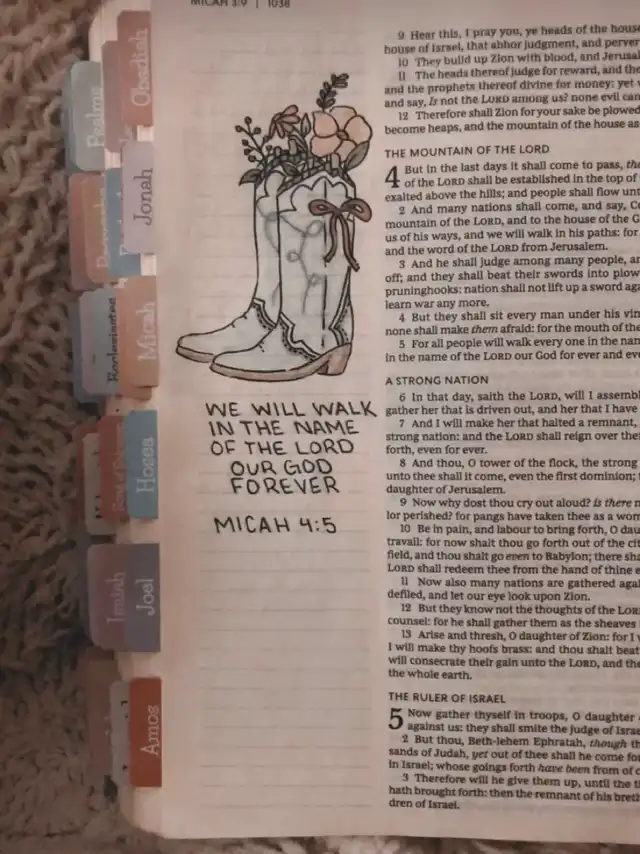 MICAH 3:9 | 1038
Obadiah
Psalms
Jonah
Micah
Ecclesiastes
Hosea
Joel
Amos
WE WILL WALK
IN THE NAME
OF THE LORD
OUR GOD
FOREVER
MICAH 4:5
9 Hear this, I pray you, ye heads of the
house of Israel, that abhor judgment, and
10 They build up Zion with blood, and
11 The heads thereof judge for reward, and
and the prophets thereof divine for money: yet
and say, Is not the LORD among us? none evil can
12 Therefore shall Zion for your sake be plowed
become heaps, and the mountain of the house as
THE MOUNTAIN OF THE LORD
4 But in the last days it shall come to pass,
of the LORD shall be established in the top of
exalted above the hills; and people shall flow
2 And many nations shall come, and say,
mountain of the LORD, and to the house of the
us of his ways, and we will walk in his paths: for
and the word of the LORD from Jerusalem.
3 And he shall judge among many people,
off; and they shall beat their swords into
pruninghooks: nation shall not lift up a sword
learn war any more.
4 But they shall sit every man under his
none shall make them afraid: for the mouth of the
5 For all people will walk every one in the
in the name of the LORD our God for ever and
A STRONG NATION
6 In that day, saith the LORD, will I
gather her that is driven out, and her that I have
7 And I will make her that halted a remnant,
strong nation: and the LORD shall reign over
forth, even for ever.
8 And thou, O tower of the flock, the strong
unto thee shall it come, even the first dominion;
daughter of Jerusalem.
9 Now why dost thou cry out aloud? is there
lor perished? for pangs have taken thee as a
10 Be in pain, and labour to bring forth, O
travail: for now shalt thou go forth out of the
field, and thou shalt go even to Babylon; there
LORD shall redeem thee from the hand of thine
11 Now also many nations are gathered
defiled, and let our eye look upon Zion.
12 But they know not the thoughts of the
counsel: for he shall gather them as the sheaves
13 Arise and thresh, O daughter of Zion: for I
I will make thy hoofs brass: and thou shalt beat
will consecrate their gain unto the LORD, and
the whole earth.
THE RULER OF ISRAEL
5 Now gather thyself in troops, O daughter
against us: they shall smite the judge of
2 But thou, Beth-lehem Ephratah, though
sands of Judah, yet out of thee shall he come
in Israel; whose goings forth have been from of
3 Therefore will he give them up, until the
hath brought forth: then the remnant of his
dren of Israel.